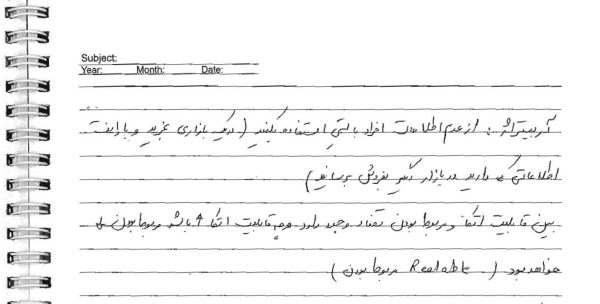 Subject:
Year: Month: Date:
آربیتراژ : از عدم اطلاعات افراد بایستی استفاده بکنید ( در یک بازاری بخرید و با این
اطلاعاتی که دارید در بازار دیگر بفروش برسانید )
بین قابلیت اتکا و مربوط بودن تضاد وجود دارد هرچه قابلیت اتکا ↑ باشد مربوط بودن ↓
خواهد بود ( Realable مربوط بودن )